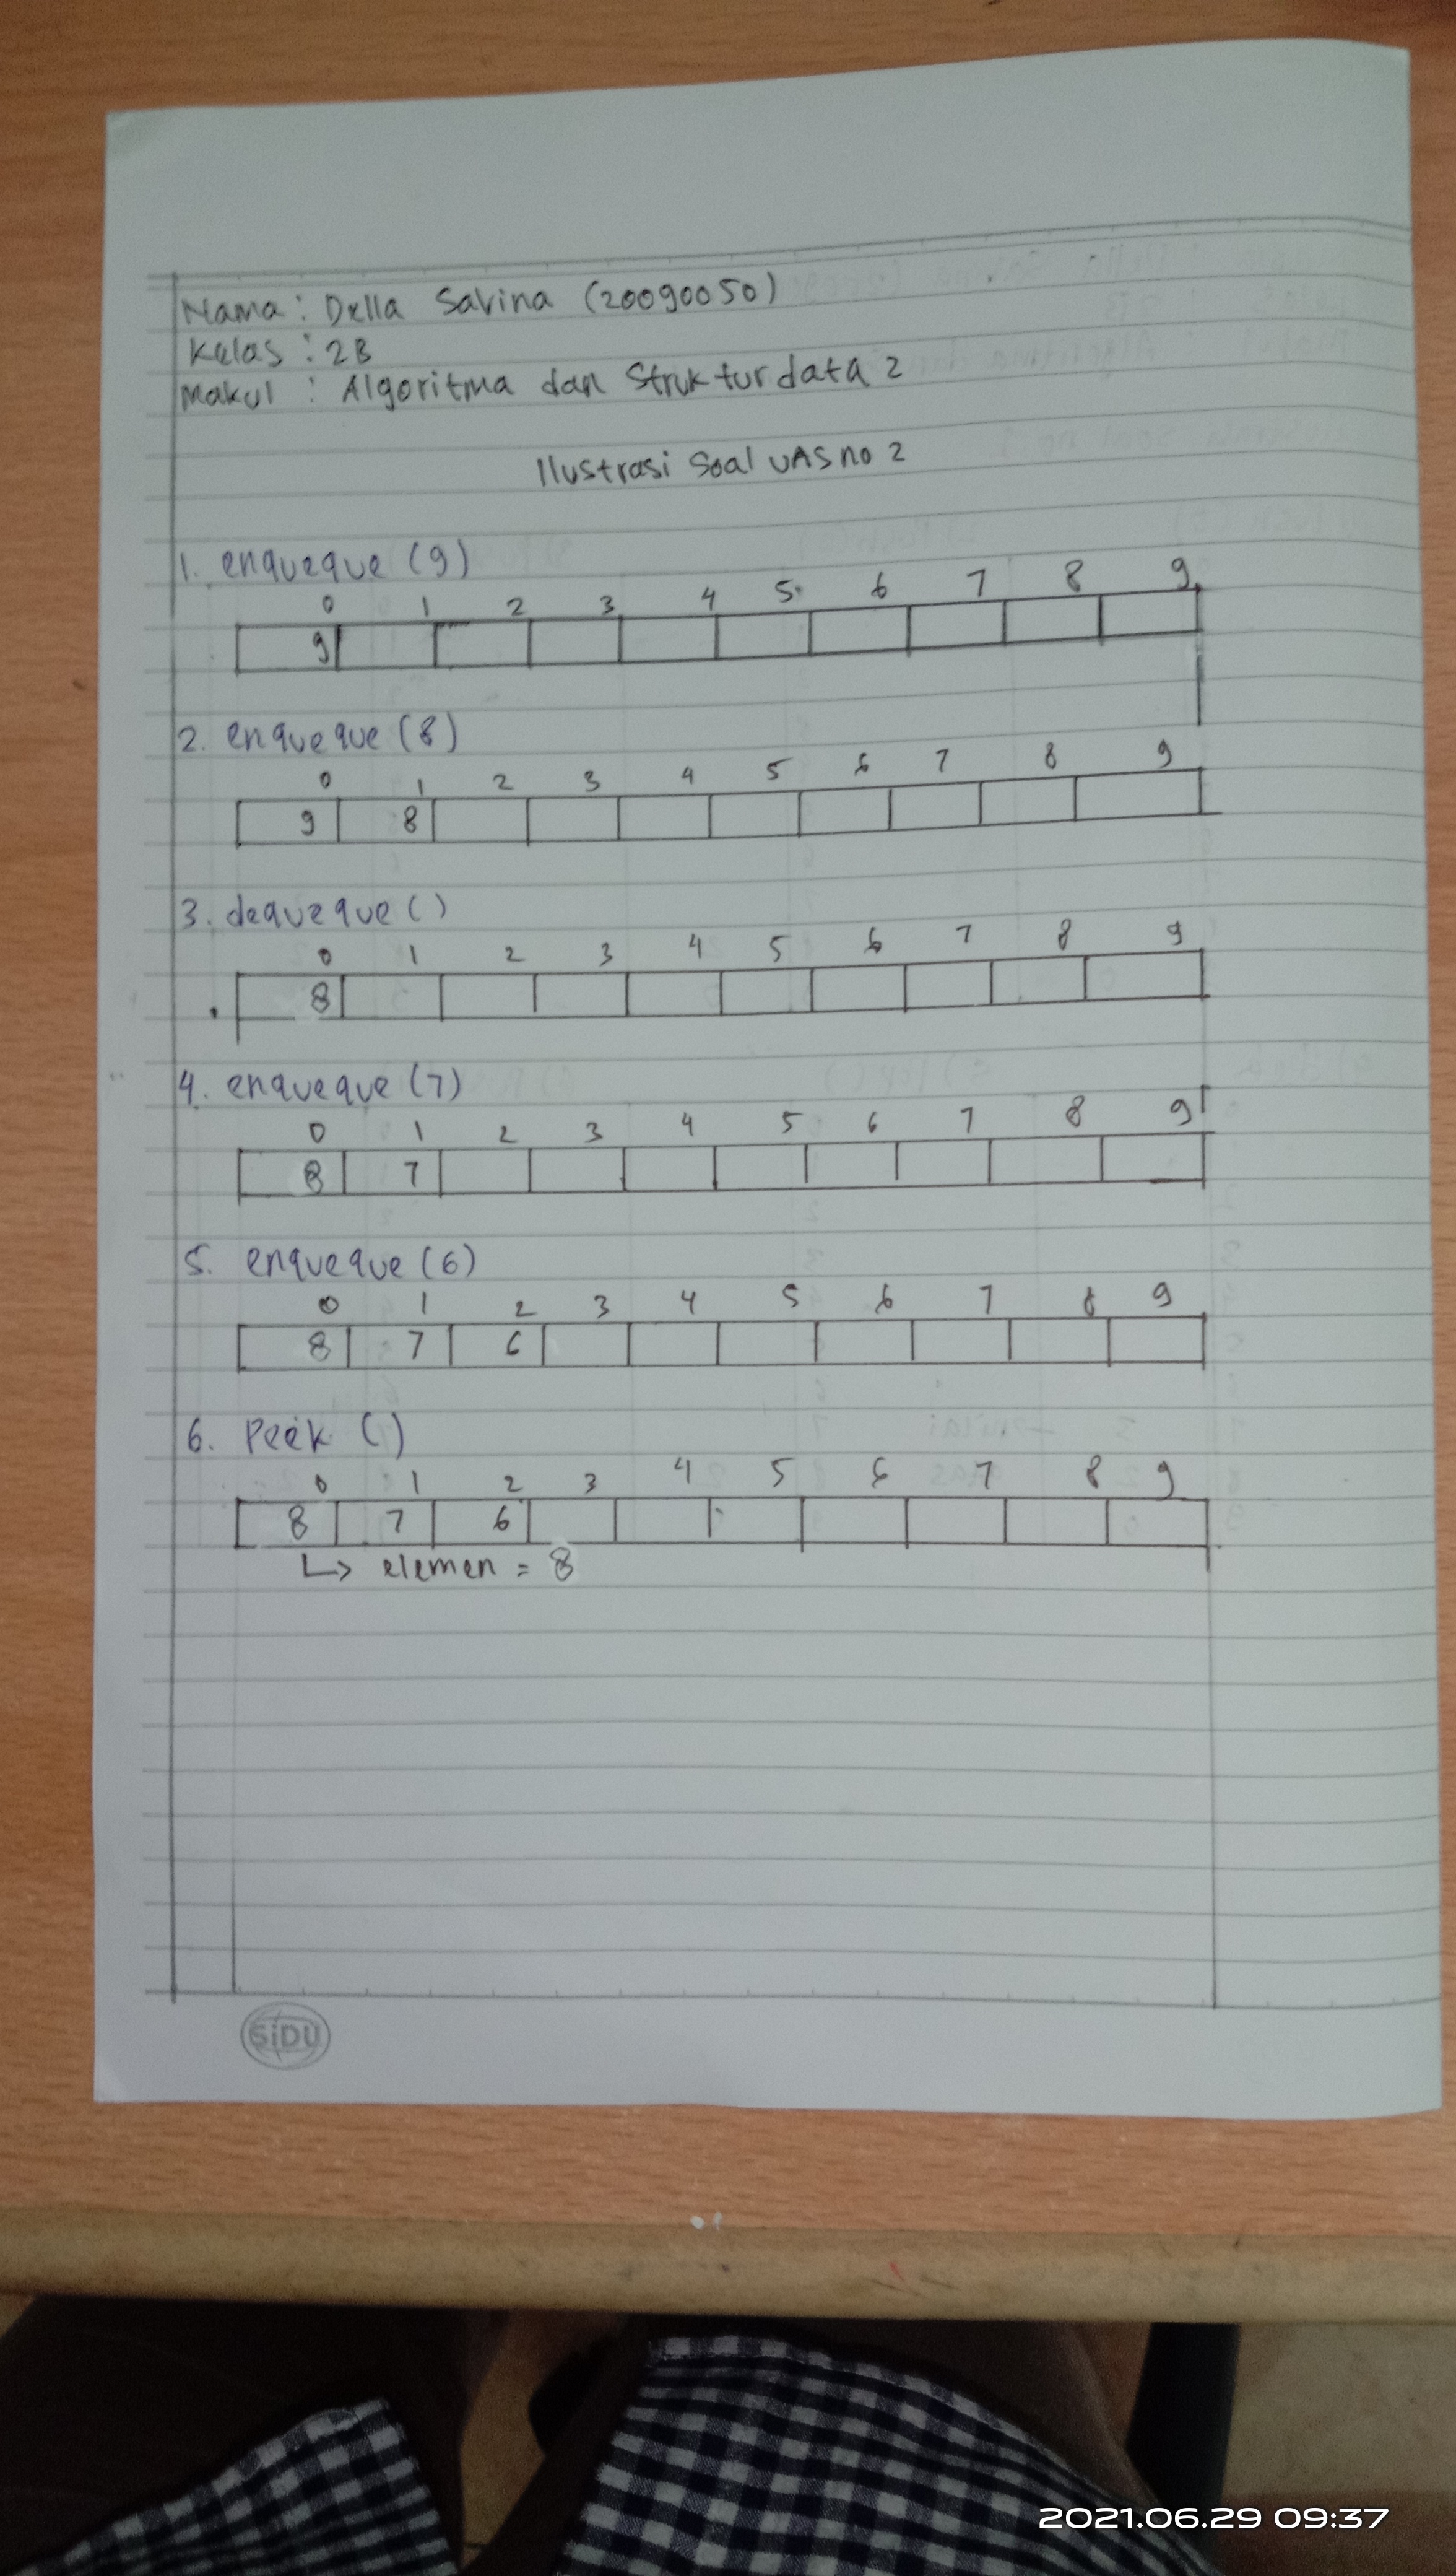 Nama : Della Savina (20090050)
Kelas : 2B
Makul : Algoritma dan Struktur data 2
Ilustrasi Soal UAS no 2
1. enqueque (9)
0 1 2 3 4 5 6 7 8 9
9
2. enqueque (8)
0 1 2 3 4 5 6 7 8 9
9 8
3. dequeque ( )
0 1 2 3 4 5 6 7 8 9
8
4. enqueque (7)
0 1 2 3 4 5 6 7 8 9
8 7
5. enqueque (6)
0 1 2 3 4 5 6 7 8 9
8 7 6
6. Peek ( )
0 1 2 3 4 5 6 7 8 9
8 7 6
↳ elemen = 8
SiDU
2021.06.29 09:37